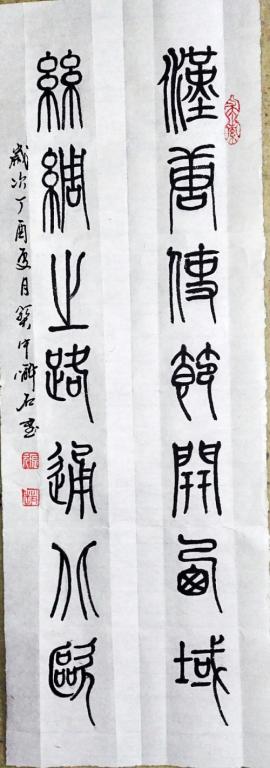 漢唐使節開西域
絲綢之路通歐
歲次丁酉夏月中石書